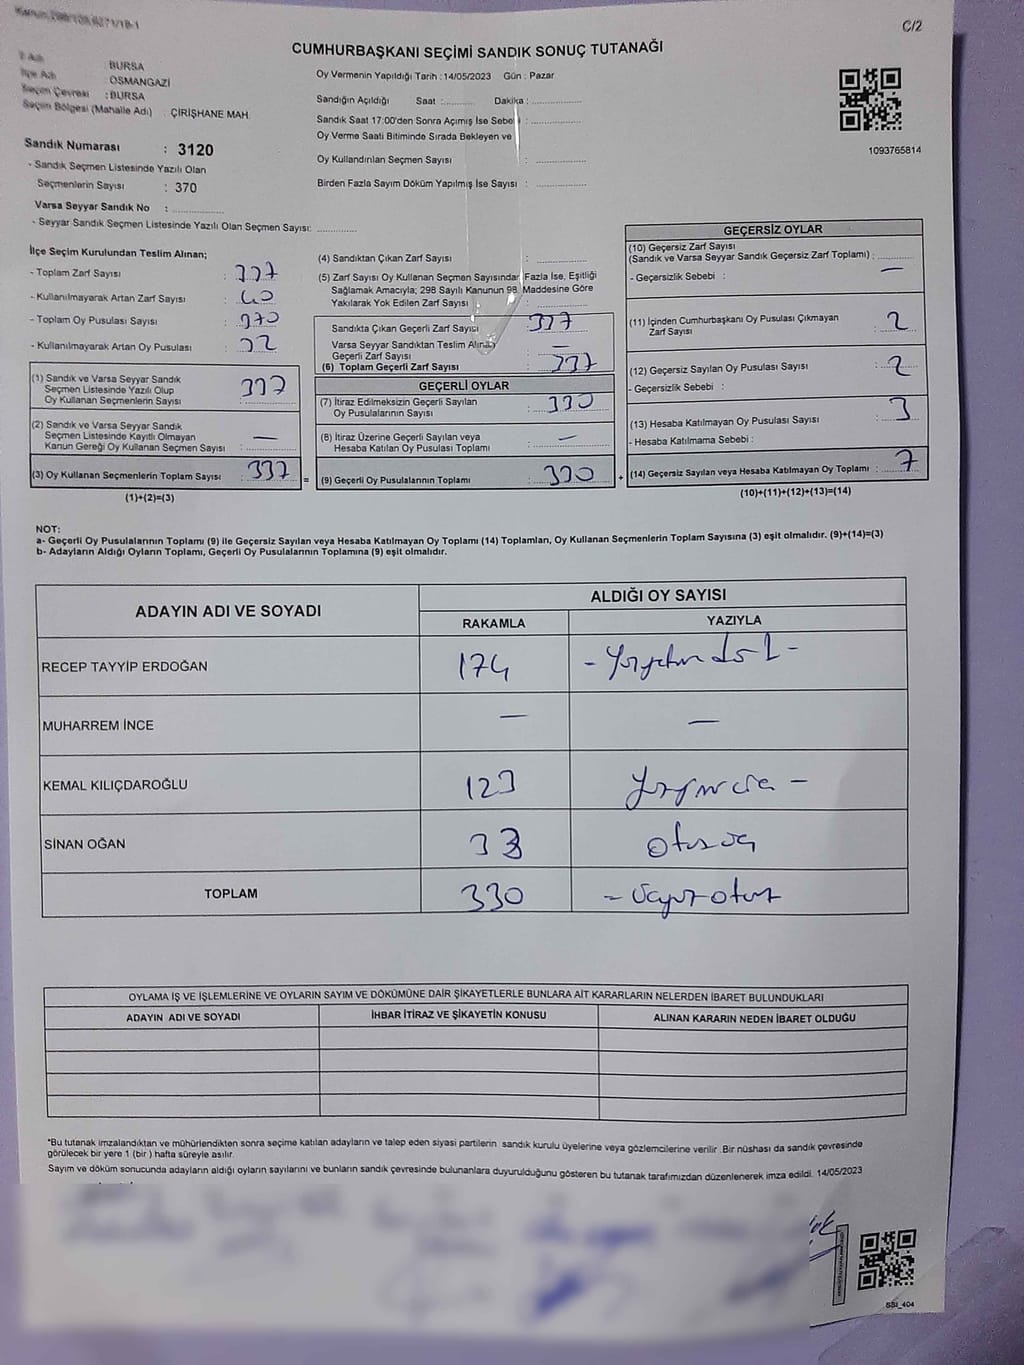 C/2
CUMHURBAŞKANI SEÇİMİ SANDIK SONUÇ TUTANAĞI
İl Adı : BURSA
İlçe Adı : OSMANGAZİ
Seçim Çevresi : BURSA
Seçim Bölgesi (Mahalle Adı) : ÇİRİŞHANE MAH.
Sandık Numarası : 3120
- Sandık Seçmen Listesinde Yazılı Olan
Seçmenlerin Sayısı : 370
Varsa Seyyar Sandık No : ..............
- Seyyar Sandık Seçmen Listesinde Yazılı Olan Seçmen Sayısı: ............
Oy Vermenin Yapıldığı Tarih : 14/05/2023 Gün : Pazar
Sandığın Açıldığı Saat :........... Dakika : ................
Sandık Saat 17:00'den Sonra Açımış İse Sebebi : ................
Oy Verme Saati Bitiminde Sırada Bekleyen ve
Oy Kullandırılan Seçmen Sayısı : ................
Birden Fazla Sayım Döküm Yapılmış İse Sayısı : ................
1093765814
İlçe Seçim Kurulundan Teslim Alınan;
- Toplam Zarf Sayısı :
- Kullanılmayarak Artan Zarf Sayısı : 40
- Toplam Oy Pusulası Sayısı : 370
- Kullanılmayarak Artan Oy Pusulası :
(1) Sandık ve Varsa Seyyar Sandık
Seçmen Listesinde Yazılı Olup
Oy Kullanan Seçmenlerin Sayısı : 337
(2) Sandık ve Varsa Seyyar Sandık
Seçmen Listesinde Kayıtlı Olmayan
Kanun Gereği Oy Kullanan Seçmen Sayısı : —
(3) Oy Kullanan Seçmenlerin Toplam Sayısı : 337
(1)+(2)=(3)
=
(4) Sandıktan Çıkan Zarf Sayısı :
(5) Zarf Sayısı Oy Kullanan Seçmen Sayısından Fazla İse, Eşitliği
Sağlamak Amacıyla; 298 Sayılı Kanunun 98. Maddesine Göre
Yakılarak Yok Edilen Zarf Sayısı :
Sandıkta Çıkan Geçerli Zarf Sayısı : 337
Varsa Seyyar Sandıktan Teslim Alınan
Geçerli Zarf Sayısı : —
(6) Toplam Geçerli Zarf Sayısı : 337
GEÇERLİ OYLAR
(7) İtiraz Edilmeksizin Geçerli Sayılan
Oy Pusulalarının Sayısı : 330
(8) İtiraz Üzerine Geçerli Sayılan veya
Hesaba Katılan Oy Pusulası Toplamı : —
(9) Geçerli Oy Pusulalarının Toplamı : 330
+
GEÇERSİZ OYLAR
(10) Geçersiz Zarf Sayısı
(Sandık ve Varsa Seyyar Sandık Geçersiz Zarf Toplamı) : ..........
- Geçersizlik Sebebi : —
(11) İçinden Cumhurbaşkanı Oy Pusulası Çıkmayan
Zarf Sayısı : 2
(12) Geçersiz Sayılan Oy Pusulası Sayısı : 2
- Geçersizlik Sebebi :
(13) Hesaba Katılmayan Oy Pusulası Sayısı : 3
- Hesaba Katılmama Sebebi :
(14) Geçersiz Sayılan veya Hesaba Katılmayan Oy Toplamı : 7
(10)+(11)+(12)+(13)=(14)
NOT:
a- Geçerli Oy Pusulalarının Toplamı (9) ile Geçersiz Sayılan veya Hesaba Katılmayan Oy Toplamı (14) Toplamları, Oy Kullanan Seçmenlerin Toplam Sayısına (3) eşit olmalıdır. (9)+(14)=(3)
b- Adayların Aldığı Oyların Toplamı, Geçerli Oy Pusulalarının Toplamına (9) eşit olmalıdır.
ADAYIN ADI VE SOYADI
ALDIĞI OY SAYISI
RAKAMLA YAZIYLA
RECEP TAYYİP ERDOĞAN 174
MUHARREM İNCE — —
KEMAL KILIÇDAROĞLU 123
SİNAN OĞAN 33 otuzüç
TOPLAM 330 - üçyüzotuz
OYLAMA İŞ VE İŞLEMLERİNE VE OYLARIN SAYIM VE DÖKÜMÜNE DAİR ŞİKAYETLERLE BUNLARA AİT KARARLARIN NELERDEN İBARET BULUNDUKLARI
ADAYIN ADI VE SOYADI İHBAR İTİRAZ VE ŞİKAYETİN KONUSU ALINAN KARARIN NEDEN İBARET OLDUĞU
*Bu tutanak imzalandıktan ve mühürlendikten sonra seçime katılan adayların ve talep eden siyasi partilerin sandık kurulu üyelerine veya gözlemcilerine verilir. Bir nüshası da sandık çevresinde
görülecek bir yere 1 (bir ) hafta süreyle asılır.
Sayım ve döküm sonucunda adayların aldığı oyların sayılarını ve bunların sandık çevresinde bulunanlara duyurulduğunu gösteren bu tutanak tarafımızdan düzenlenerek imza edildi. 14/05/2023
SSI_404